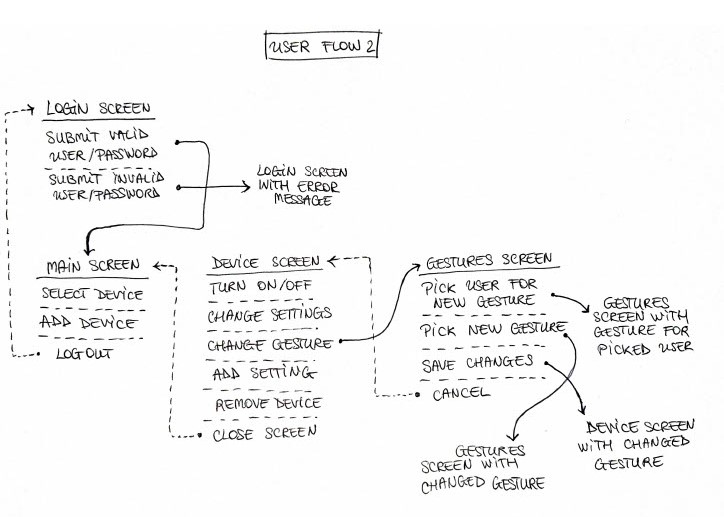 USER FLOW 2
LOGIN SCREEN
SUBMIT VALID
USER/PASSWORD
SUBMIT INVALID
USER/PASSWORD
LOGIN SCREEN
WITH ERROR
MESSAGE
MAIN SCREEN
SELECT DEVICE
ADD DEVICE
LOG OUT
DEVICE SCREEN
TURN ON/OFF
CHANGE SETTINGS
CHANGE GESTURE
ADD SETTING
REMOVE DEVICE
CLOSE SCREEN
GESTURES SCREEN
PICK USER FOR
NEW GESTURE
PICK NEW GESTURE
SAVE CHANGES
CANCEL
GESTURES
SCREEN WITH
GESTURE FOR
PICKED USER
GESTURES
SCREEN WITH
CHANGED GESTURE
DEVICE SCREEN
WITH CHANGED
GESTURE